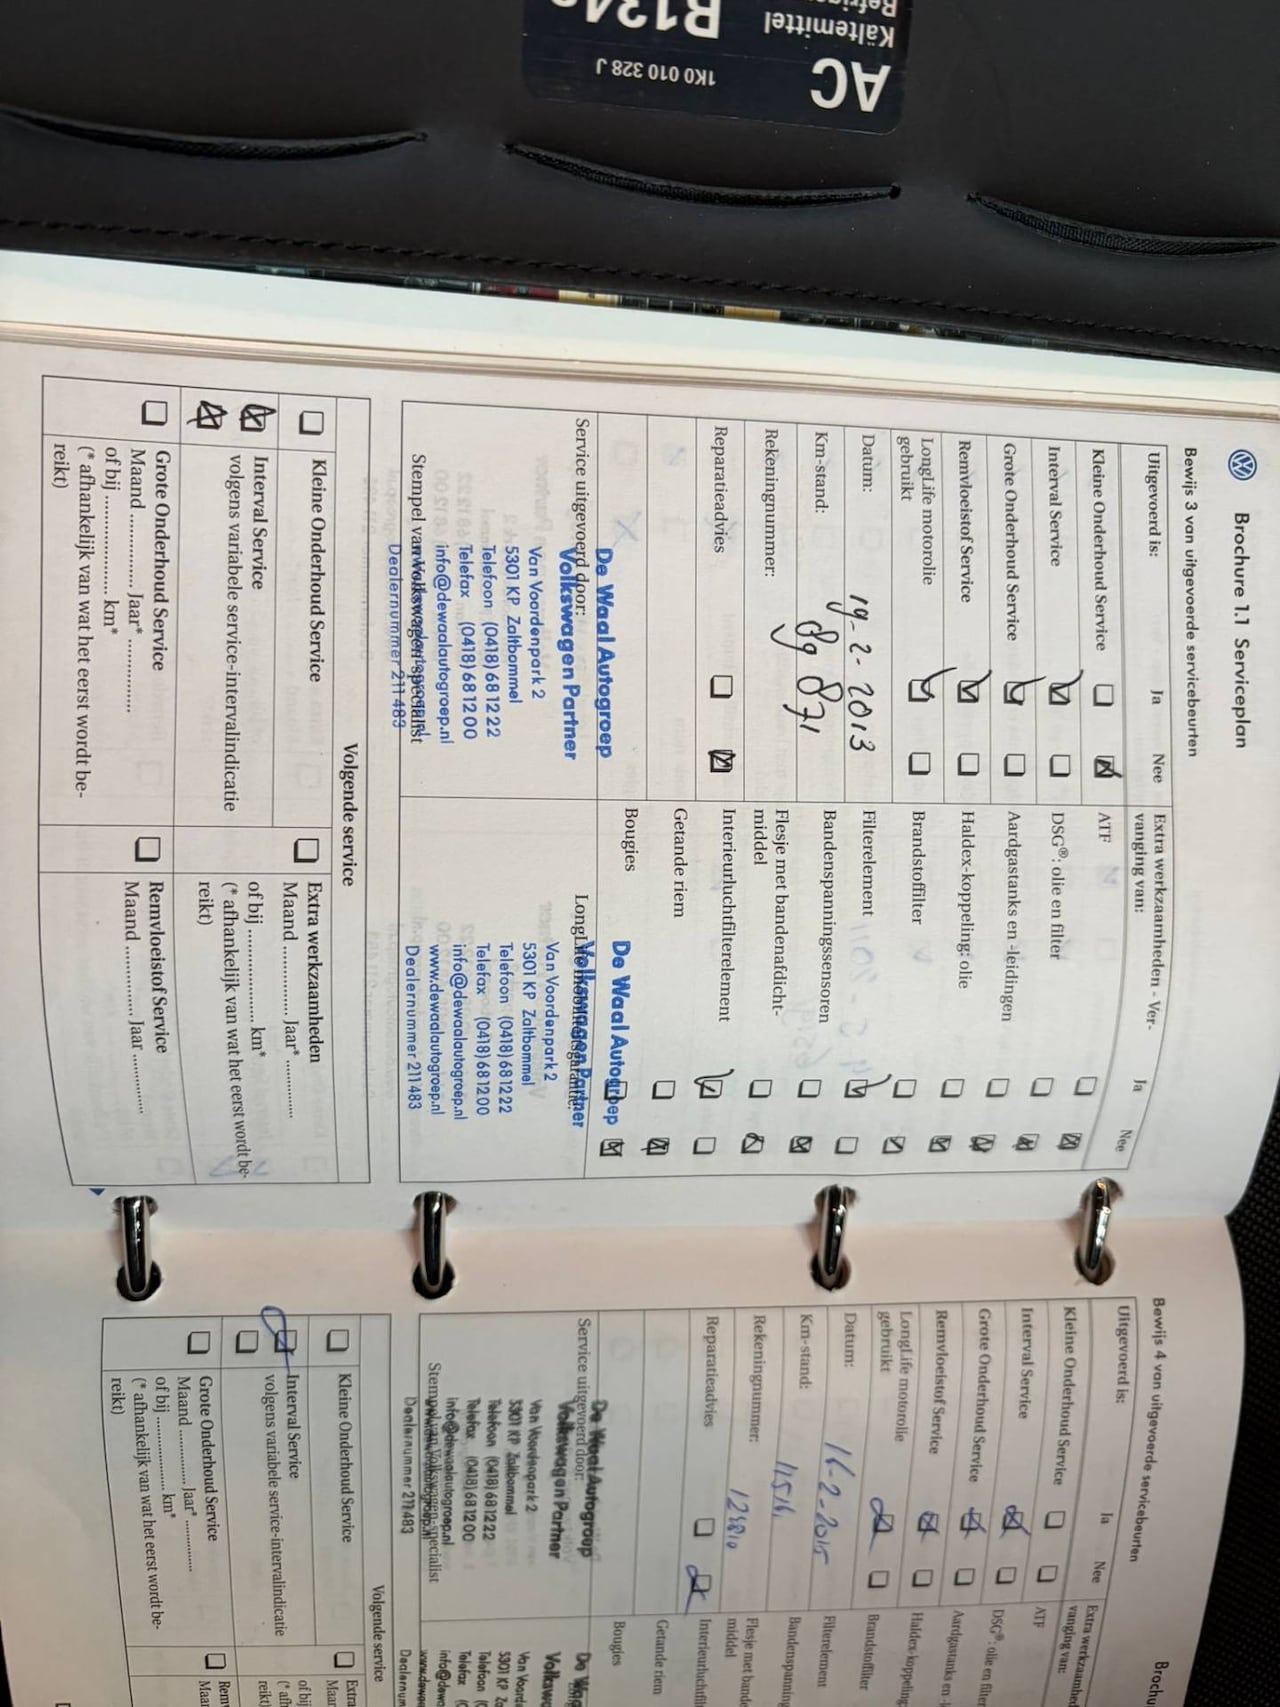 AC
1K0 010 328 J
Kältemittel
Brochure 1.1 Serviceplan
Bewijs 3 van uitgevoerde servicebeurten
Uitgevoerd is: Ja Nee
Kleine Onderhoud Service
Interval Service
Grote Onderhoud Service
Remvloeistof Service
LongLife motorolie
gebruikt
Datum: 19-2-2013
Km-stand: 89 871
Rekeningnummer:
Reparatieadvies
Service uitgevoerd door:
De Waal Autogroep
Volkswagen Partner
Van Voordenpark 2
5301 KP Zaltbommel
Telefoon (0418) 68 12 22
Telefax (0418) 68 12 00
info@dewaalautogroep.nl
Dealernummer 211 483
Stempel van Volkswagen specialist
Extra werkzaamheden - Ver-
vanging van: Ja Nee
ATF
DSG®: olie en filter
Aardgastanks en -leidingen
Haldex-koppeling: olie
Brandstoffilter
Filterelement
Bandenspanningssensoren
Flesje met bandenafdicht-
middel
Interieurluchtfilterelement
Getande riem
Bougies
De Waal Autogroep
Volkswagen Partner
Van Voordenpark 2
5301 KP Zaltbommel
Telefoon (0418) 68 12 22
Telefax (0418) 68 12 00
info@dewaalautogroep.nl
www.dewaalautogroep.nl
Dealernummer 211 483
Volgende service
Kleine Onderhoud Service
Interval Service
volgens variabele service-intervalindicatie
Grote Onderhoud Service
Maand ............. Jaar* ...............
of bij .................... km*
(* afhankelijk van wat het eerst wordt be-
reikt)
Extra werkzaamheden
Maand ............. Jaar* ............
of bij .................... km*
(* afhankelijk van wat het eerst wordt be-
reikt)
Remvloeistof Service
Maand ............. Jaar ............
Bewijs 4 van uitgevoerde servicebeurten
Uitgevoerd is: Ja Nee
Kleine Onderhoud Service
Interval Service
Grote Onderhoud Service
Remvloeistof Service
LongLife motorolie
gebruikt
Datum: 16-2-2015
Km-stand:
Rekeningnummer:
Reparatieadvies
Service uitgevoerd door:
De Waal Autogroep
Volkswagen Partner
Van Voordenpark 2
5301 KP Zaltbommel
Telefoon (0418) 68 12 22
Telefax (0418) 68 12 00
info@dewaalautogroep.nl
Dealernummer 211 483
Stempel van Volkswagen specialist
ATF
DSG®: olie en filter
Brandstoffilter
Filterelement
middel
Getande riem
Bougies
Volgende service
Kleine Onderhoud Service
Interval Service
volgens variabele service-intervalindicatie
Grote Onderhoud Service
Maand ............. Jaar* ...............
of bij .................... km*
(* afhankelijk van wat het eerst wordt be-
reikt)
Extra